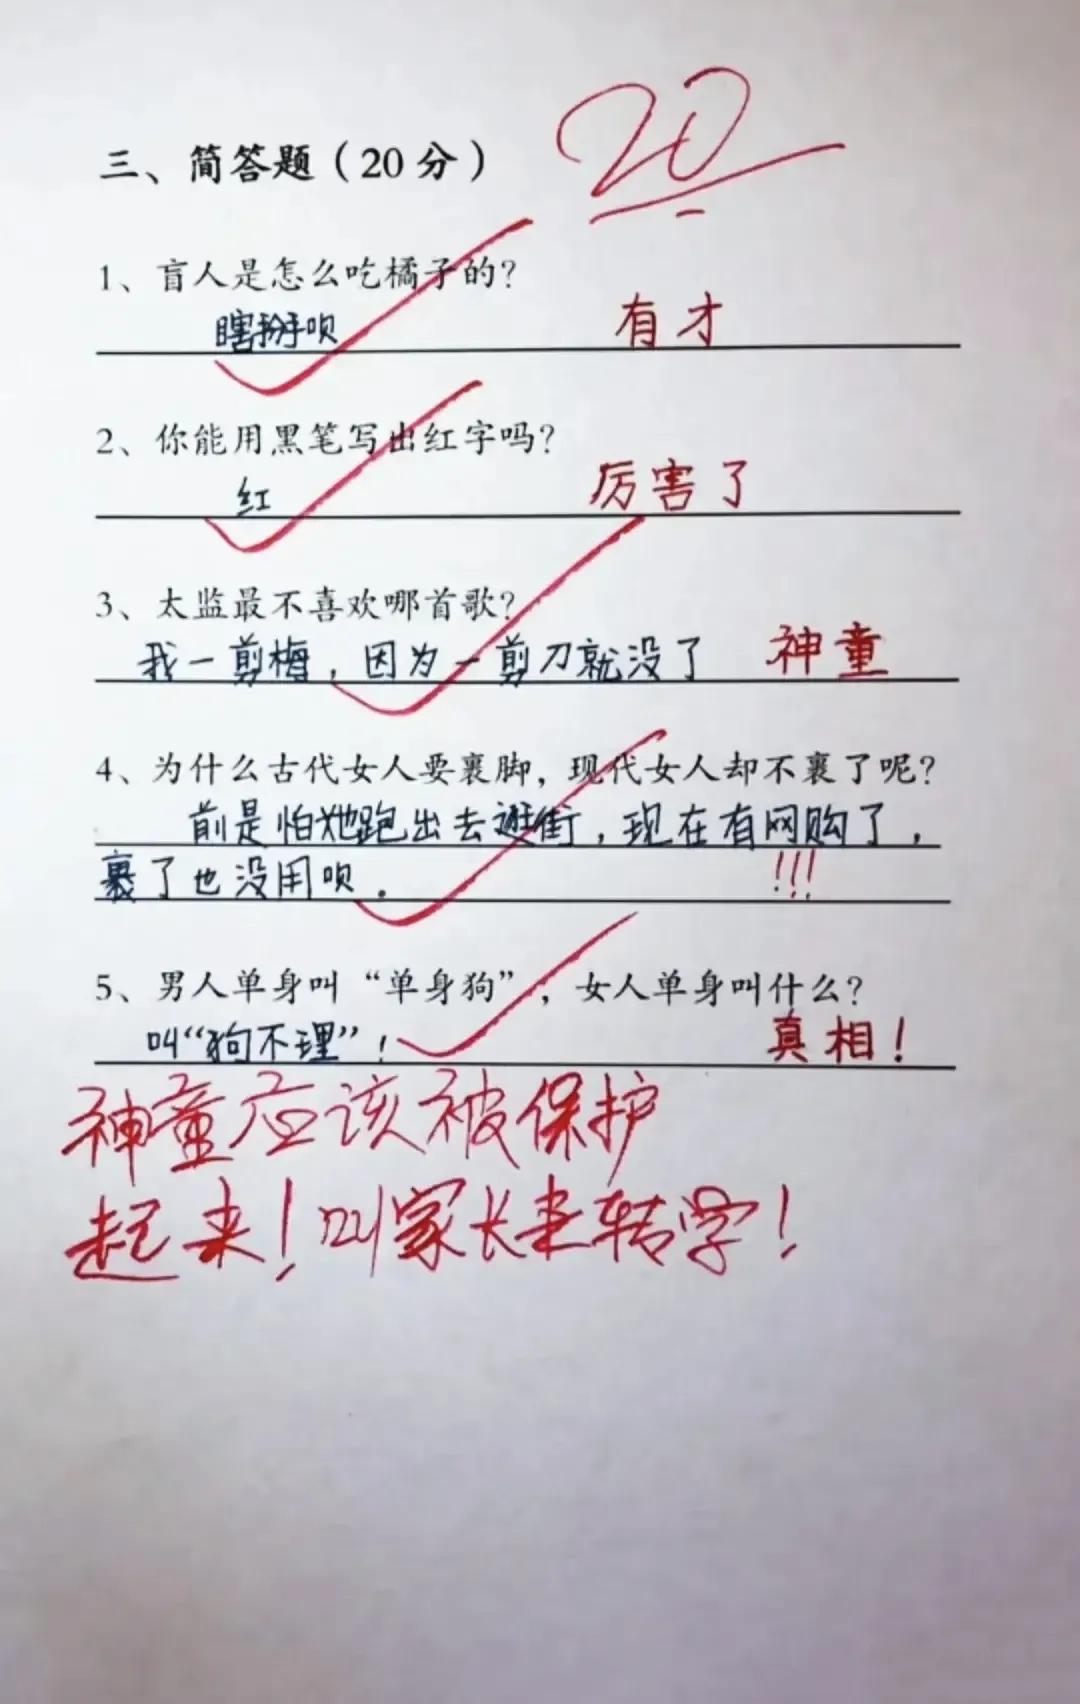 三、简答题（20分） 20
1、盲人是怎么吃橘子的？
瞎掰呗 有才
2、你能用黑笔写出红字吗？
红 厉害了
3、太监最不喜欢哪首歌？
我一剪梅，因为一剪刀就没了 神童
4、为什么古代女人要裹脚，现代女人却不裹了呢？
前是怕她跑出去逛街，现在有网购了，
裹了也没用呗。 !!!
5、男人单身叫“单身狗”，女人单身叫什么？
叫“狗不理”！ 真相！
神童应该被保护
起来！叫家长来转学！